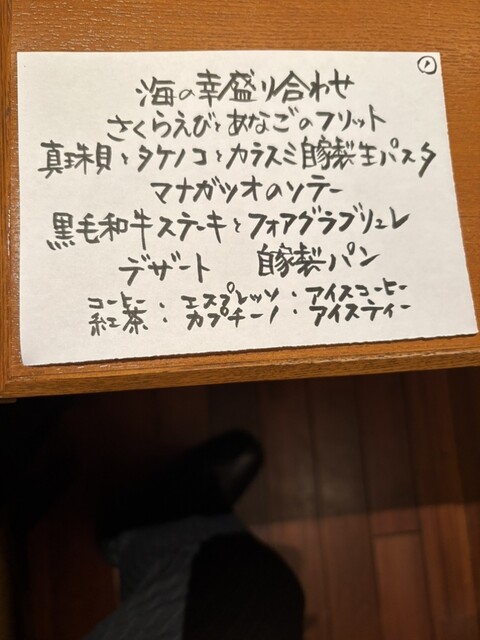 海の幸盛り合わせ
さくらえびとあなごのフリット
真珠貝とタケノコとカラスミ自家製生パスタ
マナガツオのソテー
黒毛和牛ステーキとフォアグラブリュレ
デザート 自家製パン
コーヒー：エスプレッソ：アイスコーヒー
紅茶：カプチーノ：アイスティー